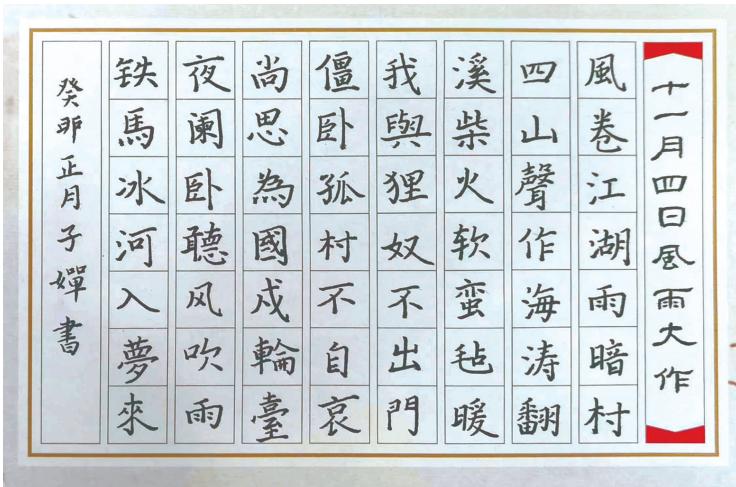 十一月四日風雨大作
風卷江湖雨暗村
四山聲作海涛翻
溪柴火软蛮毡暖
我與狸奴不出門
僵卧孤村不自哀
尚思為國戍輪臺
夜阑卧聽风吹雨
铁馬冰河入夢來
癸卯正月子嬋書